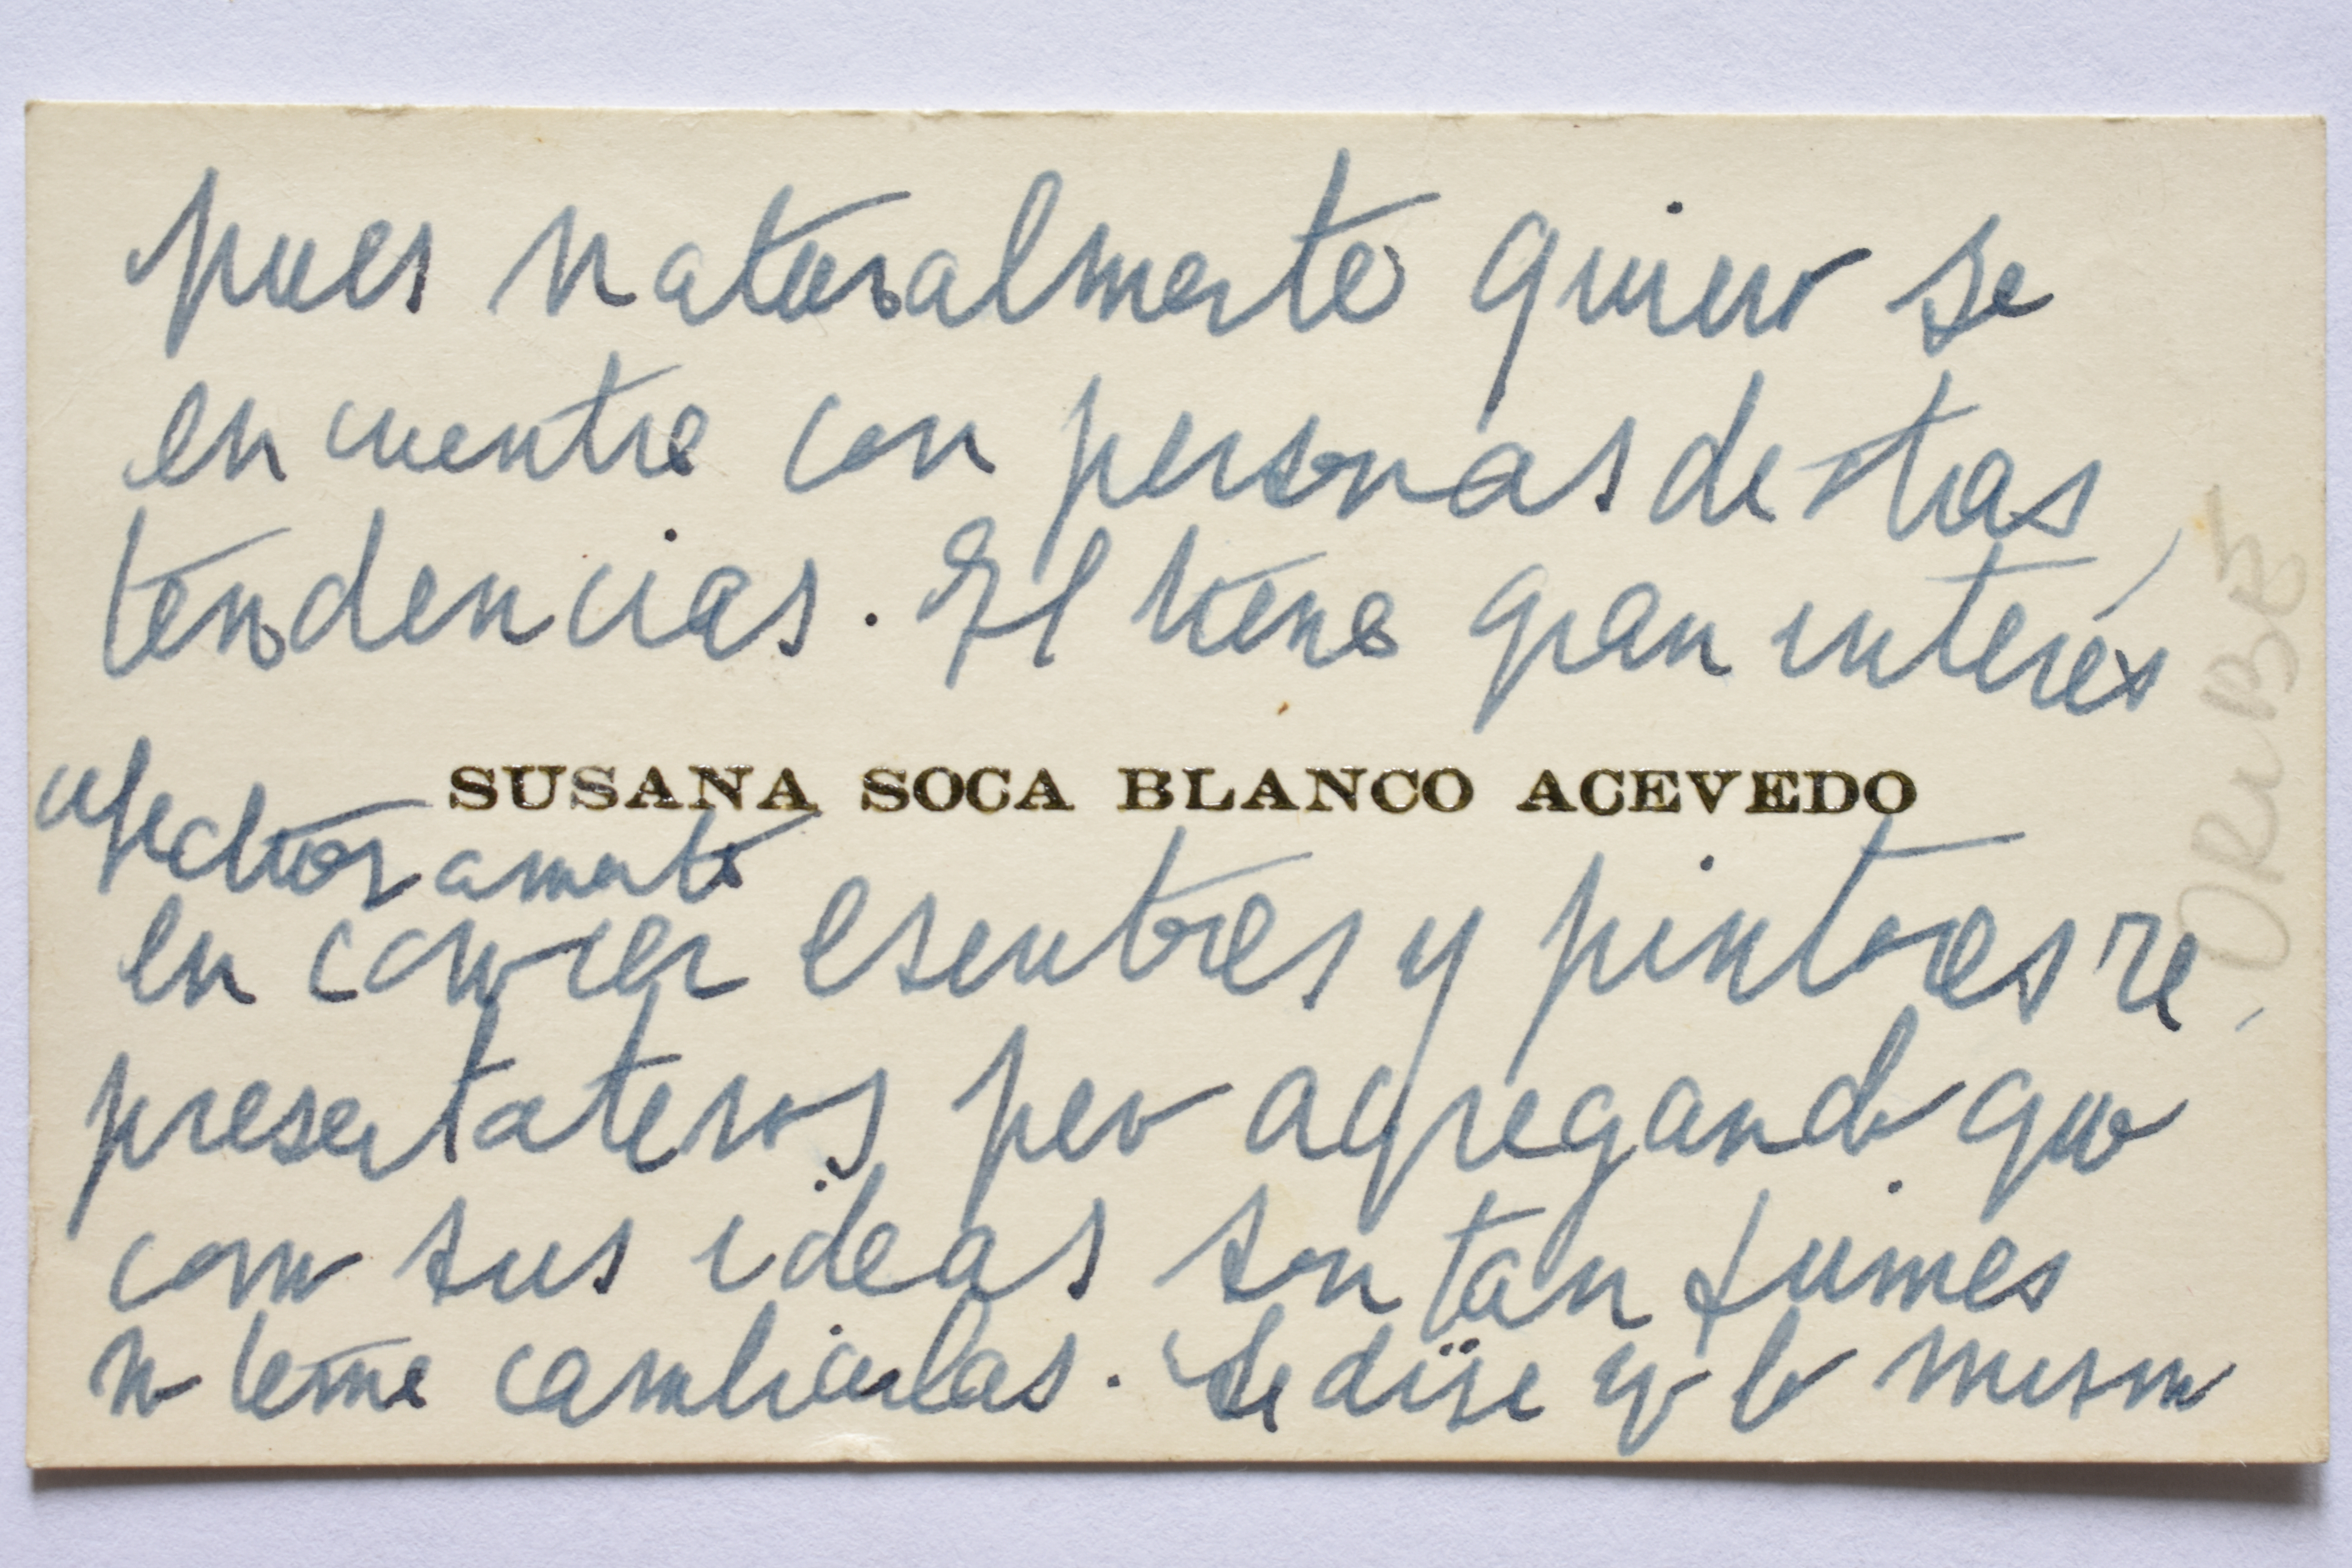 pues naturalmente quiero se
encuentre con personas de otras
tendencias. El tiene gran interés
SUSANA SOCA BLANCO ACEVEDO
afectuosamente
en conocer escritores y pintores re
presentativos pero agregando que
como sus ideas son tan firmes
no teme cambiarlas. Le dije yo lo mismo
ORIBE